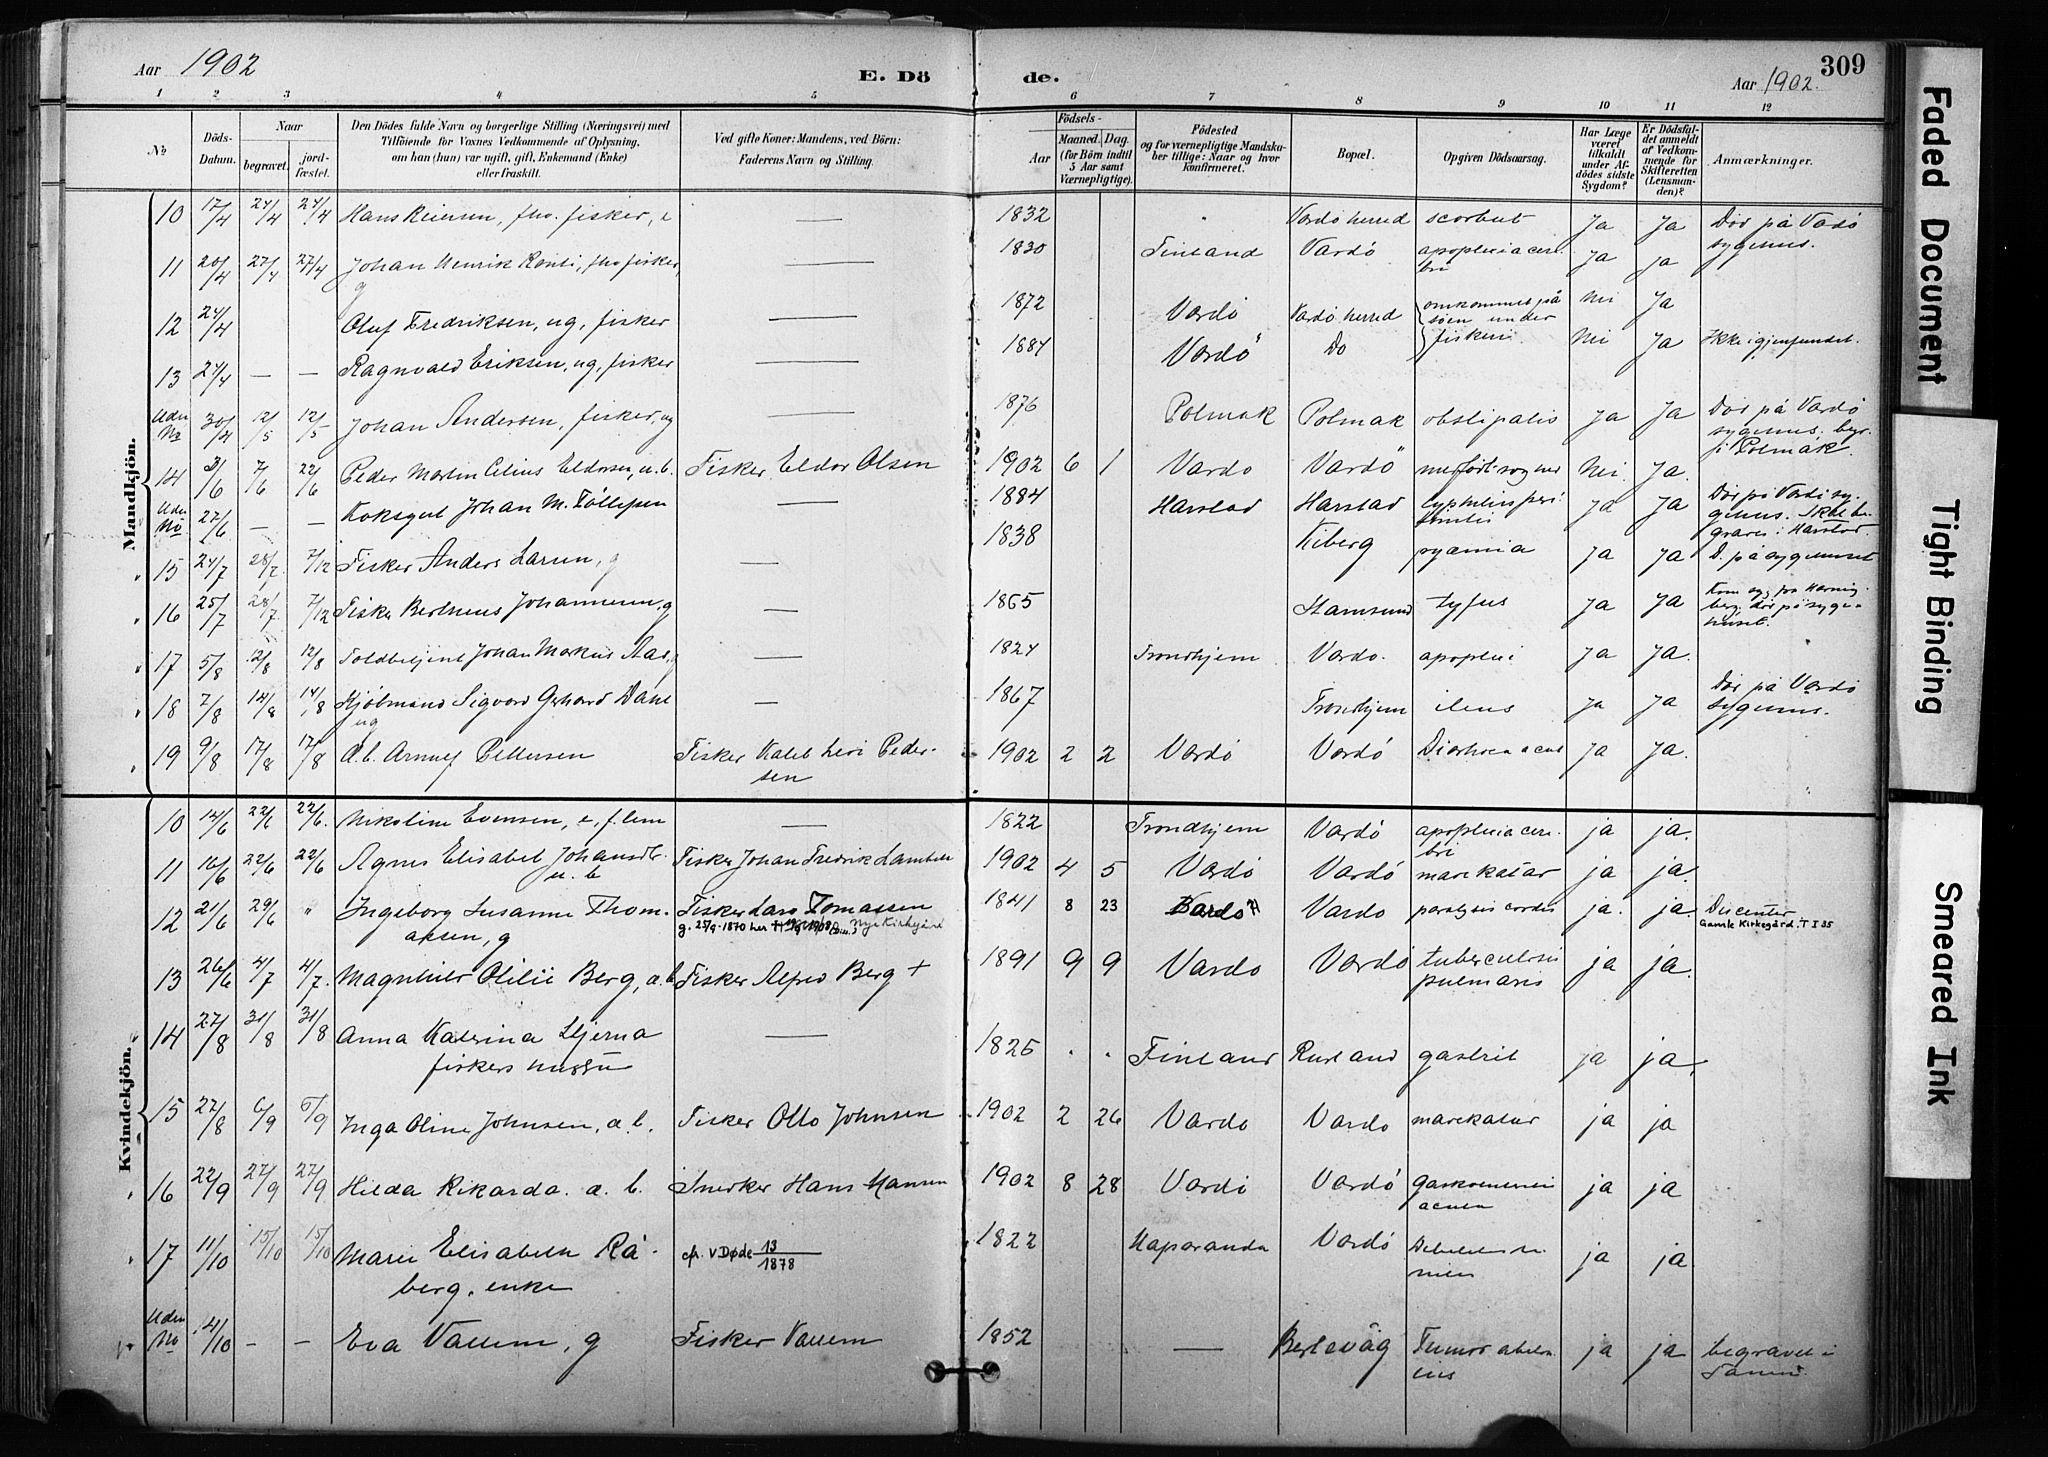 Aar 1902
E. Dö
de.
Aar 1902.
309
1 2 3 4 5 6 7 8 9 10 11 12
No
Döds-Datum.
Naar
begravet.
jordfæstet.
Den Dödes fulde Navn og borgerlige Stilling (Næringsvei) med
Tilföiende for Voxnes Vedkommende af Oplysning,
om han (hun) var ugift, gift, Enkemand (Enke)
eller fraskilt.
Ved gifte Koner: Mandens, ved Börn:
Faderens Navn og Stilling.
Födsels-
Aar
Maaned. Dag.
(for Börn indtil
5 Aar samt
Værnepligtige).
Födested
og for værnepligtige Mandskaber tillige: Naar og hvor
konfirmeret.
Bopæl.
Opgiven Dödsaarsag.
Har Læge
været
tilkaldt
under Afdödes sidste
Sygdom?
Er Dödsfaldet anmeldt
af Vedkommende for
Skifteretten
(Lensmanden)?
Anmærkninger.
Mandkjön.
10 17/4 24/4 24/4 Hans Reiersen, fhv. fisker, e — 1832 " Vardö herred scorbut Ja Ja Död på Vardö sygehus.
11 20/4 27/4 27/4 Johan Henrik Ronti, fhv fisker, g — 1830 Finland Vardö apoplexia cerebri Ja ja
12 24/4 Oluf Fredriksen, ug, fisker — 1872 Vardö Vardö herred omkommet på söen under fiskeri. Nei Ja
13 24/4 — — Ragnvald Eriksen, ug, fisker — 1884 Vardö Do Nei Ja Ikke igjenfundet.
Uden No 30/4 12/5 12/5 Johan Andersen, fisker, ug — 1876 Polmak Polmak obstipatio Ja Ja Död på Vardö sygehus. begr. i Polmak.
14 3/6 7/6 22/6 Peder Martin Celius Eldorsen, u.b. Fisker Eldor Olsen 1902 6 1 Vardö Vardö Nei. Ja.
Uden No 27/6 — — Koksgut Johan M. Tollefsen — 1884 Harstad Harstad ja Ja Död på Vardö sygehus. Skal begraves i Harstad.
15 24/7 28/7 7/12 Fisker Anders Larsen, g — 1838 Kiberg pyæmia ja ja D. på sygehuset
16 25/7 28/7 7/12 Fisker Bertheus Johannesen, g — 1865 Stamsund tyfus ja ja Kom syg fra Havningberg. Död på sygehuset.
17 5/8 12/8 12/8 Toldbetjent Johan Markus Aas, g — 1824 Trondhjem Vardö. apoplexi ja ja.
18 7/8 14/8 14/8 Kjöbmand Sigvard Gerhard Dahl ug — 1867 Trondhjem ileus ja ja Död på Vardö sygehus.
19 9/8 17/8 17/8 a.b. Arnulf Pettersen Fisker Kaleb Levi Pedersen 1902 2 2 Vardö Vardö Diarrhoea acut ja ja.
Kvindekjön.
10 14/6 22/6 22/6. Nikoline Evensen, e, f. lem — 1822 Trondhjem Vardö apoplexia cerebri ja ja.
11 16/6 22/6 22/6 Agnes Elisabet Johansdtr. u.b Fisker Johan Fredrik 1902 4 5 Vardö Vardö mavekatar ja ja.
12 21/6 29/6 " Ingeborg Susanne Thomasen, g Fisker Lars Tomassen 1841 8 23 Vardö paralysis cordis ja. ja. Discenter
g. 25/9-1870 her Nye Kirkegård
Gamle Kirkegård. T I 35
13 26/6 4/7 4/7. Magnhild Otilie Berg, a.b. Fisker Alfred Berg + 1891 9 9 Vardö Vardö tuberculosis pulmonis ja ja.
14 27/8 31/8 31/8 Anna Katrina Stjerna fiskers hustru — 1825 . . Finland Rusland gastrit ja ja.
15 27/8 6/9 6/9 Inga Oline Johnsen, a.b. Fisker Otto Johnsen 1902 2 26 Vardö Vardö mavekatar ja ja
16 22/9 27/9 27/9 Hilda Rikarda. a.b. Snekker Hans Hansen 1902 8 28 Vardö Vardö acuta ja ja
17 11/10 15/10 15/10 Marie Elisabeth Råberg, enke cfr. V Döde 13/1878 1822 Haparanda Vardö ja ja
Uden No 4/10 — — Eva Vallem, g Fisker Vallem 1852 — Berlevåg Tumor ja ja begravet i Tanen
Faded Document
Tight Binding
Smeared Ink